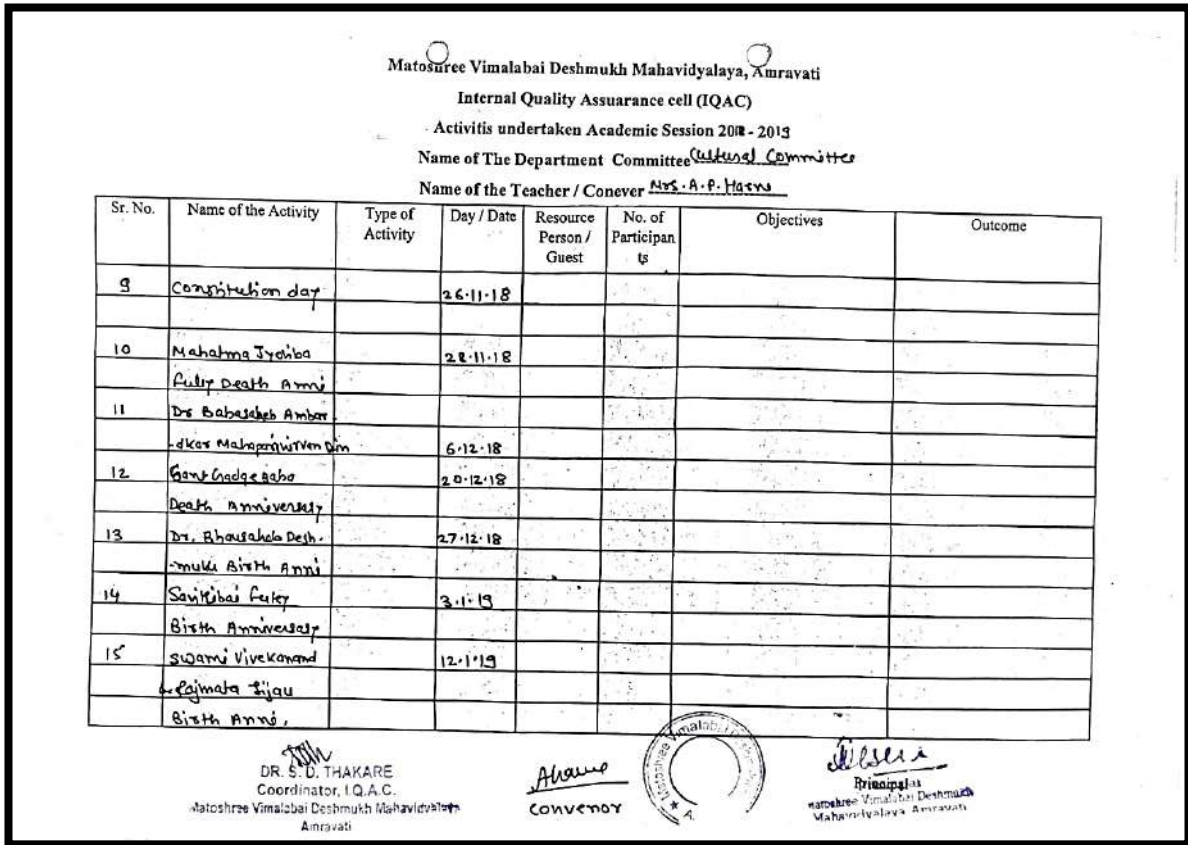 Matoshree Vimalabai Deshmukh Mahavidyalaya, Amravati
Internal Quality Assuarance cell (IQAC)
Activitis undertaken Academic Session 2018 - 2019
Name of The Department Committee Cultural Committee
Name of the Teacher / Conever Mrs. A. P. Harne
Sr. No. Name of the Activity Type of Activity Day / Date Resource Person / Guest No. of Participants Objectives Outcome
9 Constitution day 26.11.18
10 Mahatma Jyotiba 28.11.18
Fuley Death Anni
11 Dr Babasaheb Ambar
-dkar Mahaparinirvan Din 6.12.18
12 Sant Gadge Baba 20.12.18
Death Anniversary
13 Dr. Bhausaheb Desh. 27.12.18
-mukh Birth Anni
14 Savitibai Fuley 3.1.19
Birth Anniversary
15 Swami Vivekanand 12.1.19
& Rajmata Jijau
Birth Anni.
DR. S. D. THAKARE
Coordinator, I.Q.A.C.
Matoshree Vimalabai Deshmukh Mahavidyalaya
Amravati
Convenor
Matoshree Vimalabai
Principal
Matoshree Vimalabai Deshmukh
Mahavidyalaya Amravati